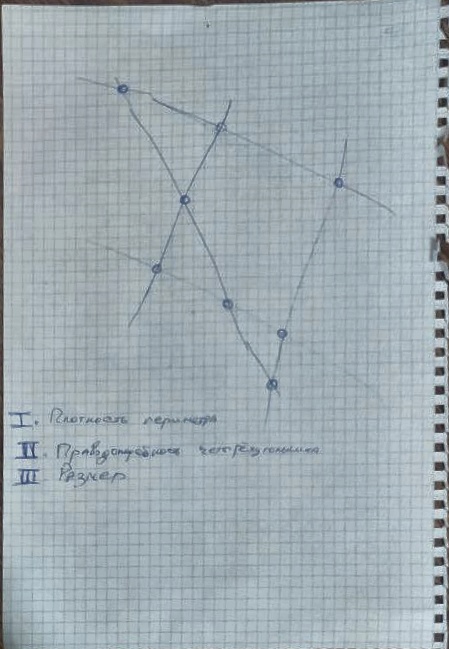 I. Плотность периметра
II. Правдоподобность четырехугольника
III. Размер